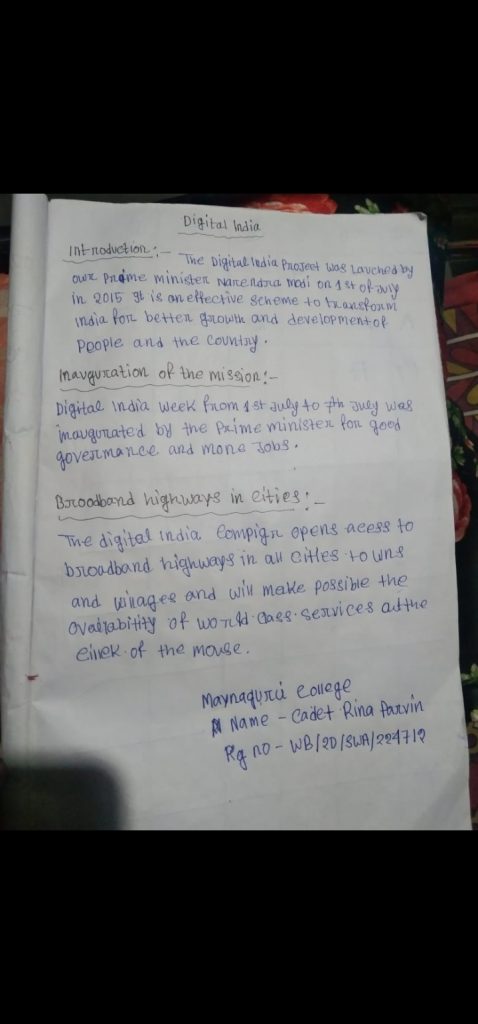 Digital India
Introduction:- The Digital India Project was Lavched by
our Prime minister Narendra modi on 1st of July
in 2015 It is an effective scheme to transform
india for better growth and development of
People and the country.
Inauguration of the mission:-
Digital India week from 1st July to 7th July was
inaugurated by the Prime minister for good
govermance and more Jobs.
Broadband highways in cities:-
The digital india Compign opens acess to
broodband highways in all cities towns
and villages and will make possible the
Ovailabitity of world class services at the
click of the mouse.
Maynaguri College
Name - Cadet Rina Parvin
Rg no - WB/20/SWA/224712